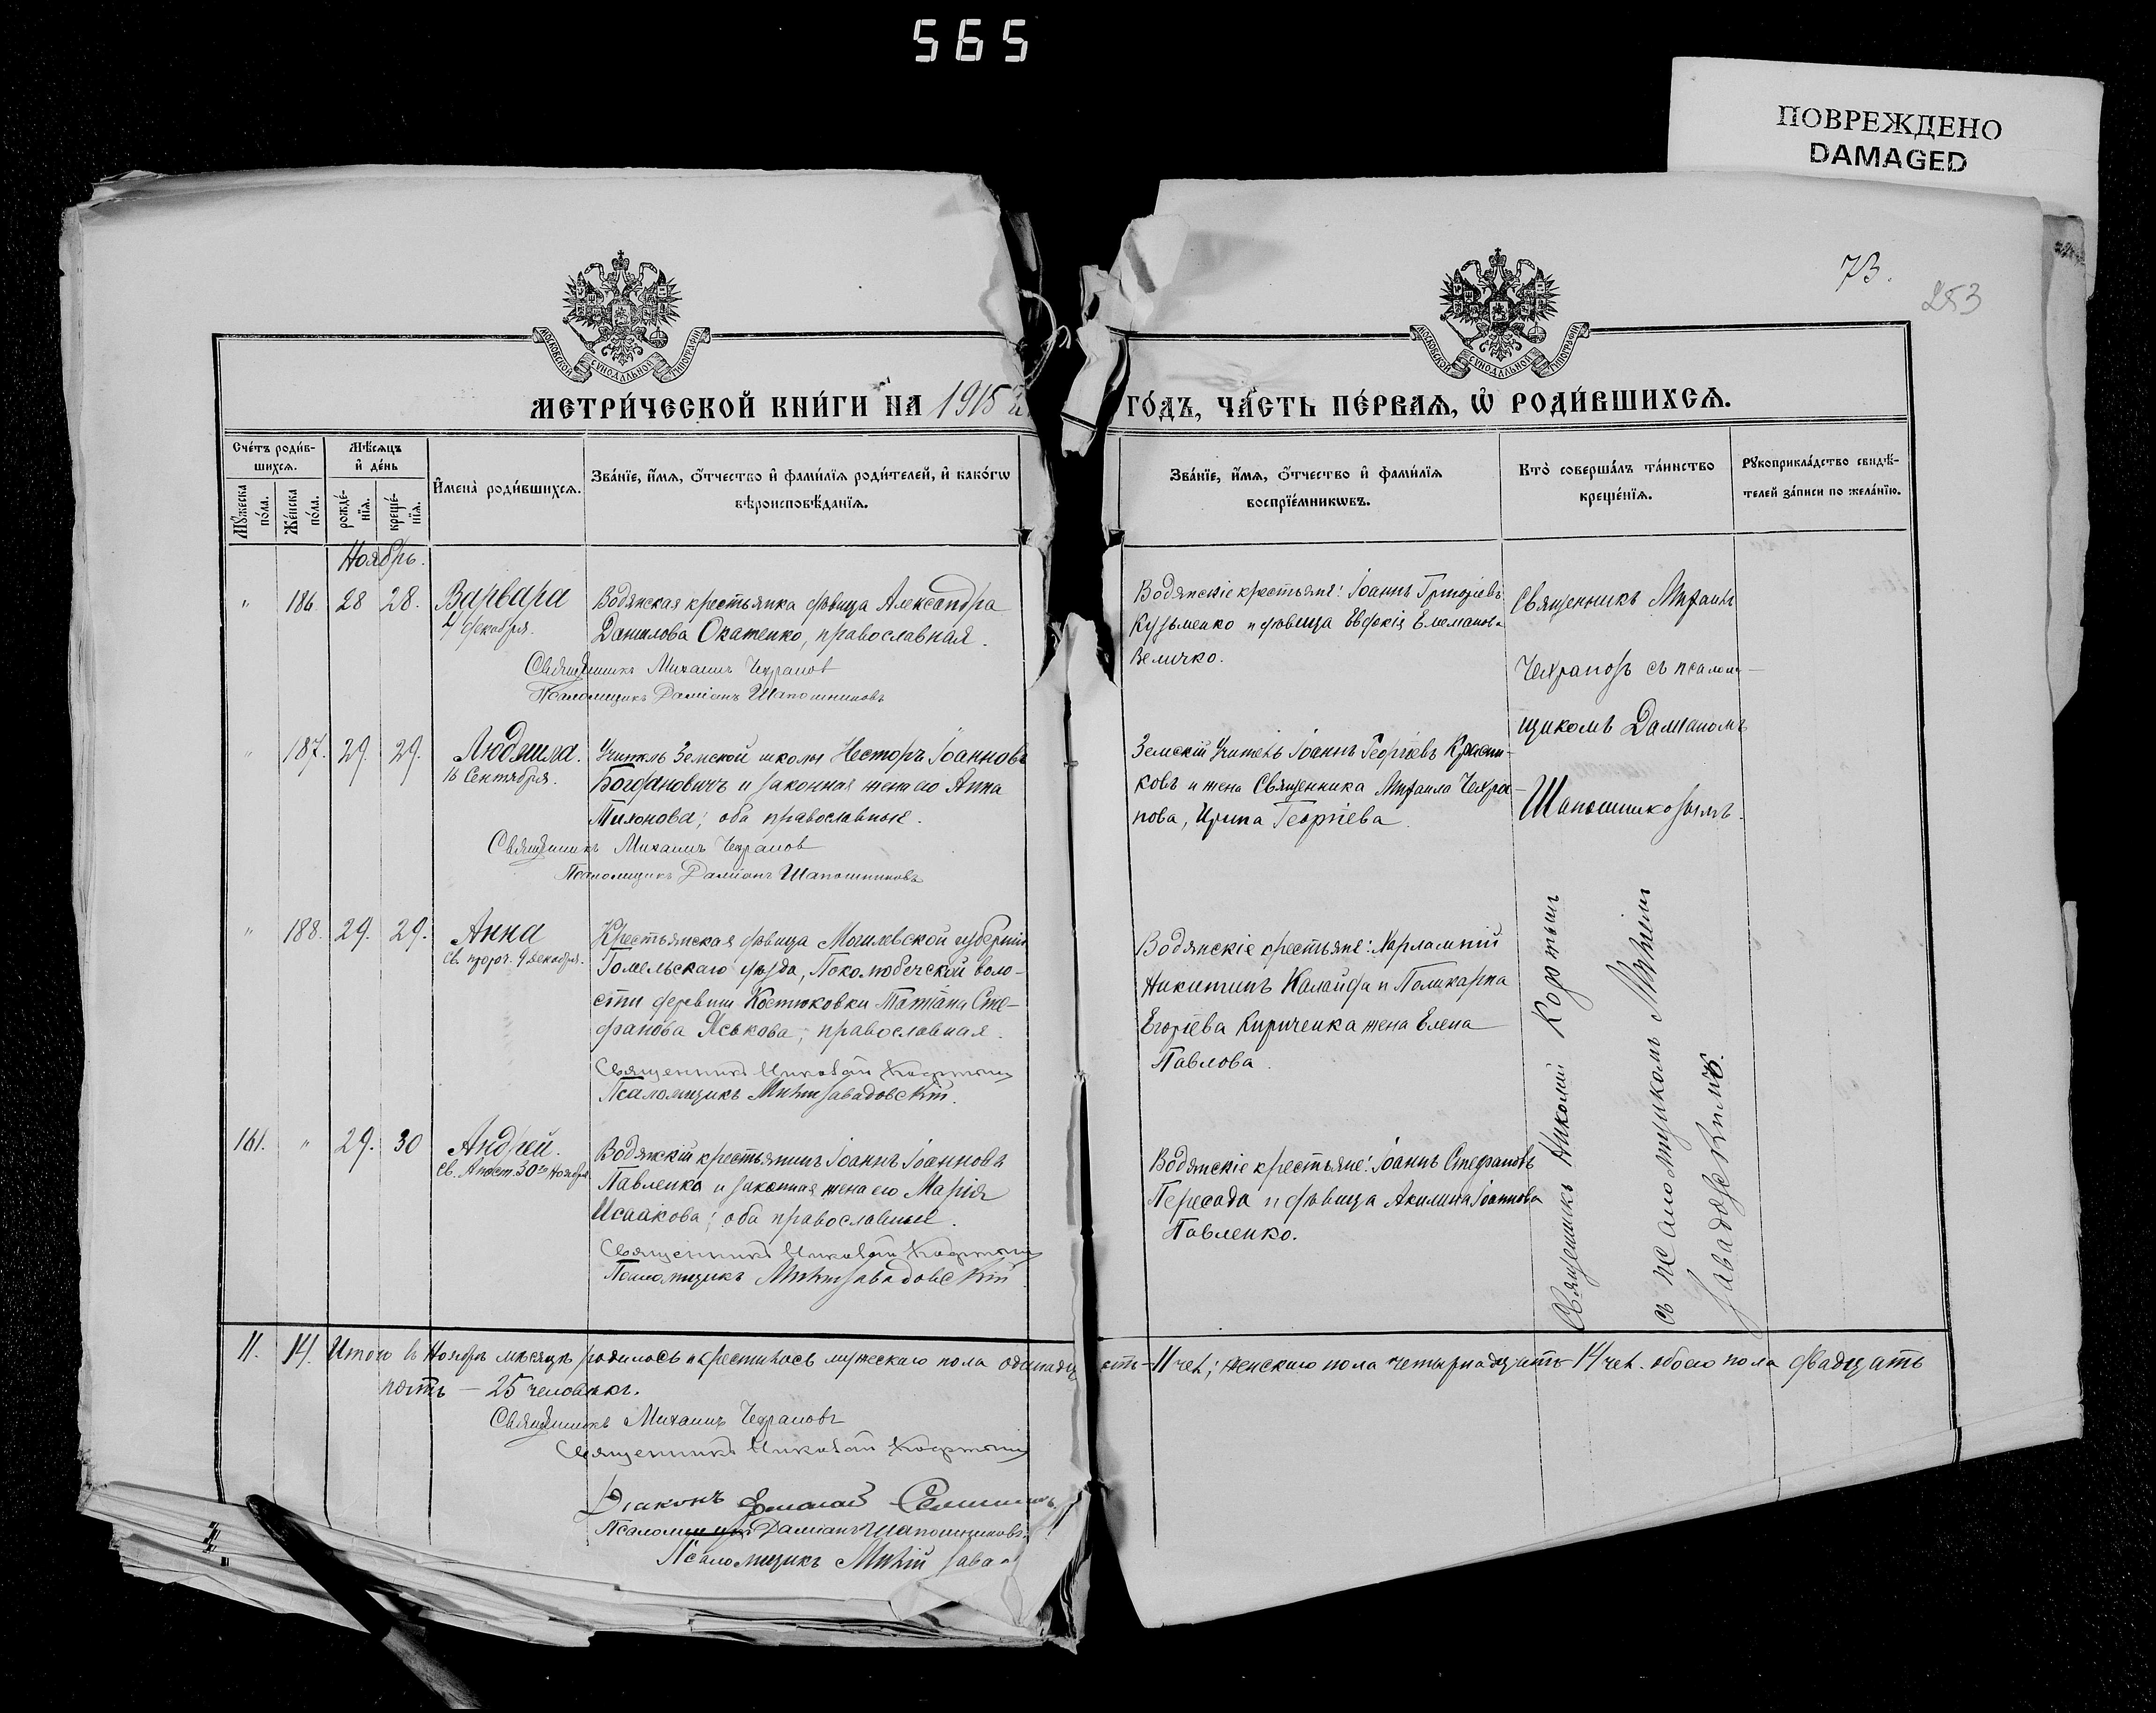 565
ПОВРЕЖДЕНО
DAMAGED
73.
253
МОСКОВСКОЙ СѴНОДАЛЬНОЙ ТИПОГРАФІИ
МОСКОВСКОЙ СѴНОДАЛЬНОЙ ТИПОГРАФІИ
МЕТРИ́ЧЕСКОЙ КНИ́ГИ НА 1915 й
ГО́ДЪ, ЧА́СТЬ ПЕ́РВАѦ, Ѽ РОДИ́ВШИХСѦ.
Сче́тъ роди́в-
шихсѧ.
Мѣ́сѧцъ
и҆ де́нь
Му́жеска
по́ла.
Же́нска
по́ла.
рожде́-
нїѧ.
креще́-
нїѧ.
И҆мена̀ роди́вшихсѧ.
Зва́нїе, и҆́мѧ, ѻ҆́тчество и҆ фами́лїѧ роди́телей, и҆ како́гѡ
вѣроисповѣ́данїѧ.
Зва́нїе, и҆́мѧ, ѻ҆́тчество и҆ фами́лїѧ
воспрїе́мникѡвъ.
Кто̀ соверша́лъ та́инство
креще́нїѧ.
Рꙋкоприкла́дство свидѣ́-
телей за́писи по жела́нїю.
Ноябрь.
" 186 28 28. Варвара
4 декабря.
Водянская крестьянка дѣвица Александра
Данилова Окатенко, православная.
Священникъ Михаилъ Чехрановъ
Псаломщикъ Даміанъ Шапошниковъ
Водянскіе крестьяне: Іоаннъ Григоріевъ
Кузьменко и дѣвица Евдокія
Величко.
Священникъ Михаилъ
Чехрановъ съ псалом-
щикомъ Даміаномъ
Шапошниковымъ.
" 187. 29. 29. Людмила.
16 Сентября.
Учитель Земской школы Несторъ Іоанновъ
Богдановичъ и законная жена его Анна
оба православные.
Священникъ Михаилъ Чехрановъ
Псаломщикъ Даміанъ Шапошниковъ
Земскій Учитель Іоаннъ Георгіевъ Красни-
ковъ и жена Священника Михаила Чехра-
нова, Ирина Георгіева.
" 188. 29. 29. Анна
св. прор. 9 декабря.
Крестьянская дѣвица Могилевской губерніи
Гомельскаго уѣзда, Поколюбичской воло-
сти деревни Костюковки Татіана Сте-
фанова Яськова, православная.
Священникъ Николай
Псаломщикъ Завадовскій.
Водянскіе крестьяне: Харлампій
Никитинъ Калайда и Поликарпа
Егоріева Кириченка жена Елена
Павлова.
Священникъ Николай
съ псаломщикомъ
Завадовскимъ.
161. " 29. 30 Андрей.
св. Апост. 30го Ноября
Водянскій крестьянинъ Іоаннъ Іоанновъ
Павленко и законная жена его Марія
Исаакова; оба православные.
Священникъ Николай
Псаломщикъ Завадовскій
Водянскіе крестьяне: Іоаннъ Стефановъ
Пересада и дѣвица Акилина Іоаннова
Павленко.
11. 14. Итого въ Ноябрѣ мѣсяцѣ родилось и крестилось мужескаго пола одинадцать-11 чел; женскаго пола четырнадцать-14 чел. обоего пола двадцать
пять — 25 человѣкъ.
Священникъ Михаилъ Чехрановъ
Священникъ Николай
Діаконъ
Псаломщикъ Даміанъ Шапошниковъ
Псаломщикъ